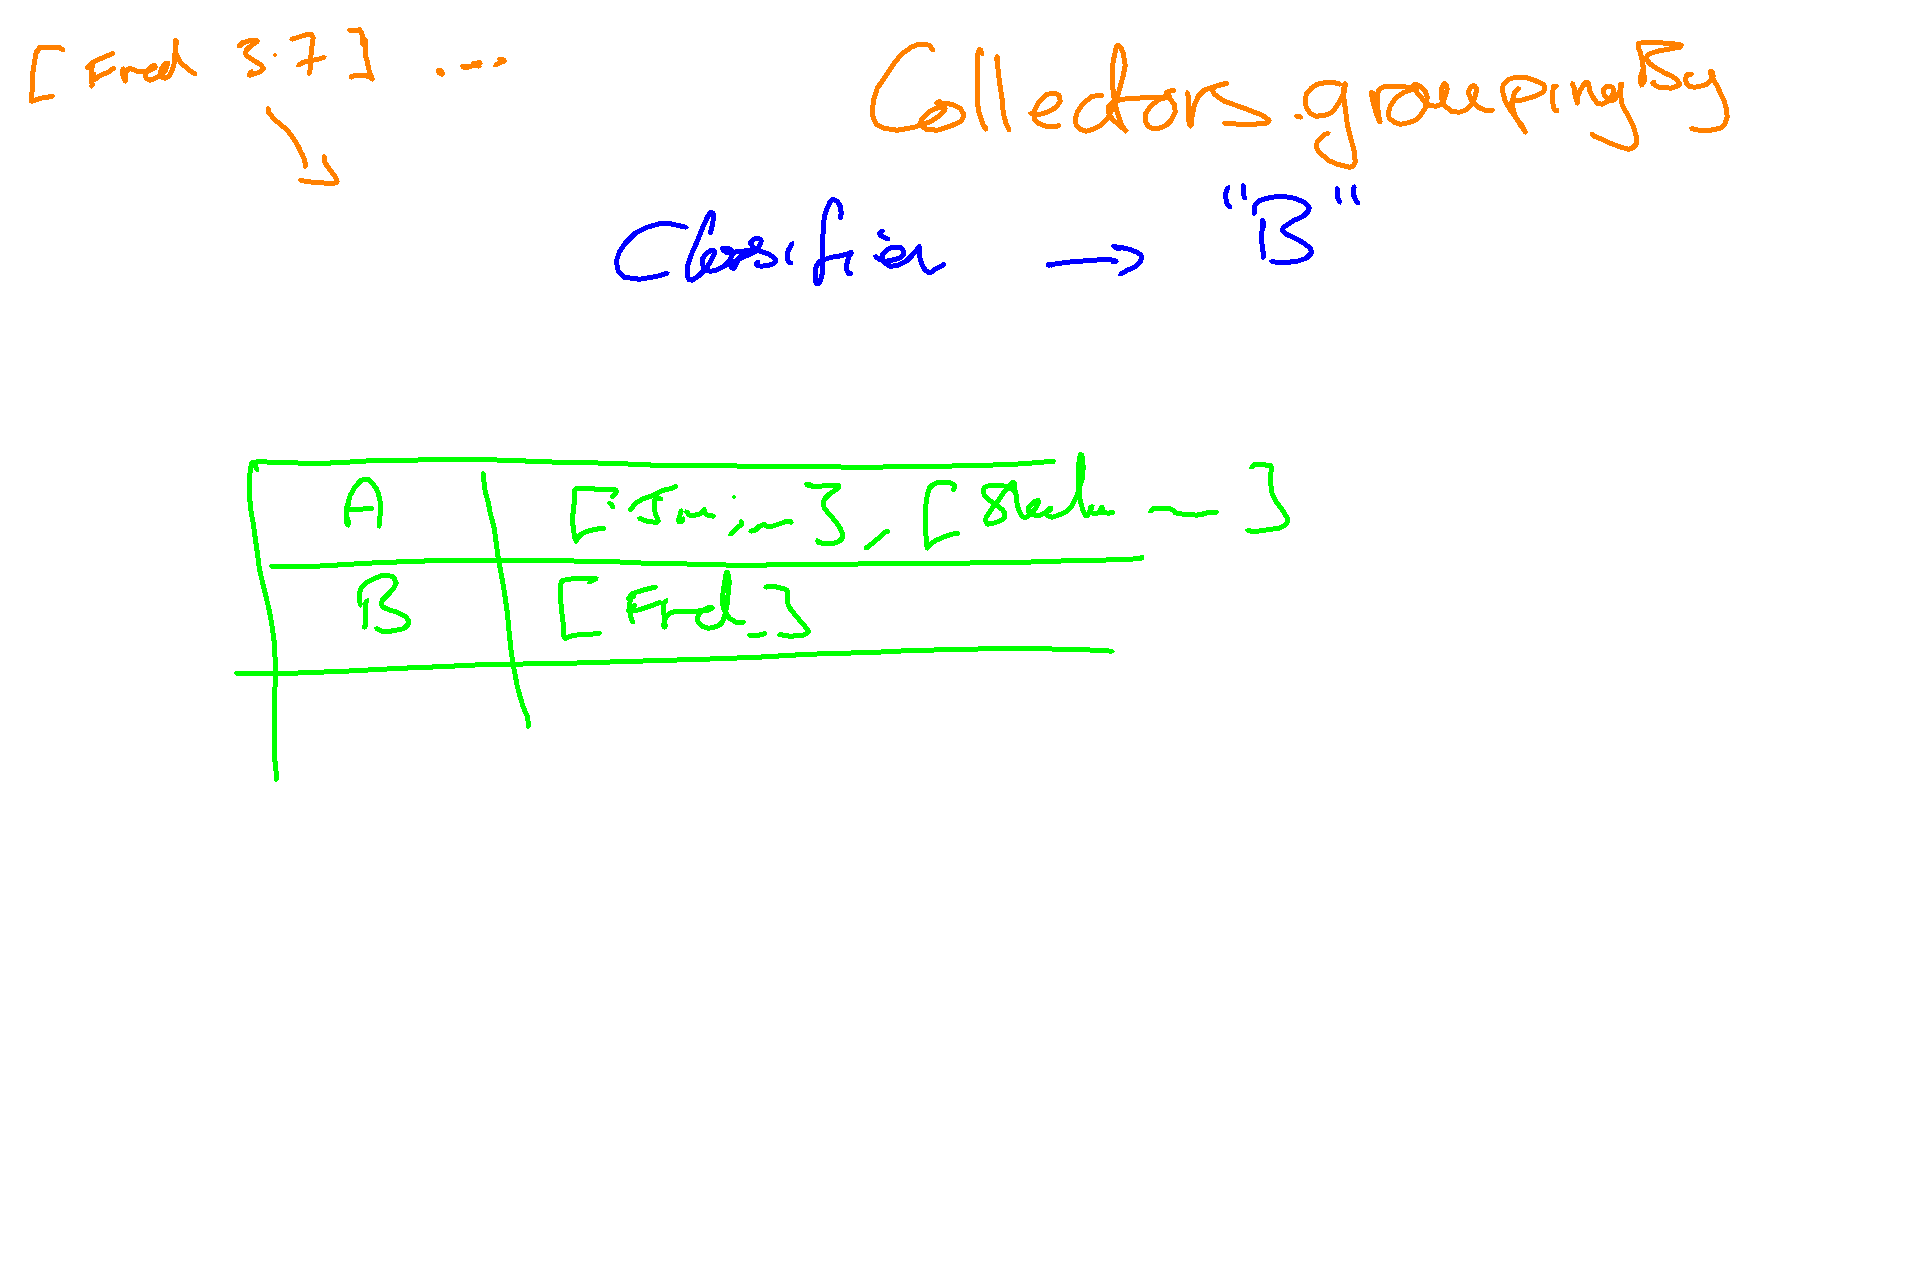 [Fred 3.7] ...
Collectors.groupingBy
Classifier → "B"
A [Jim, ~], [ ~ ]
B [Fred ~]